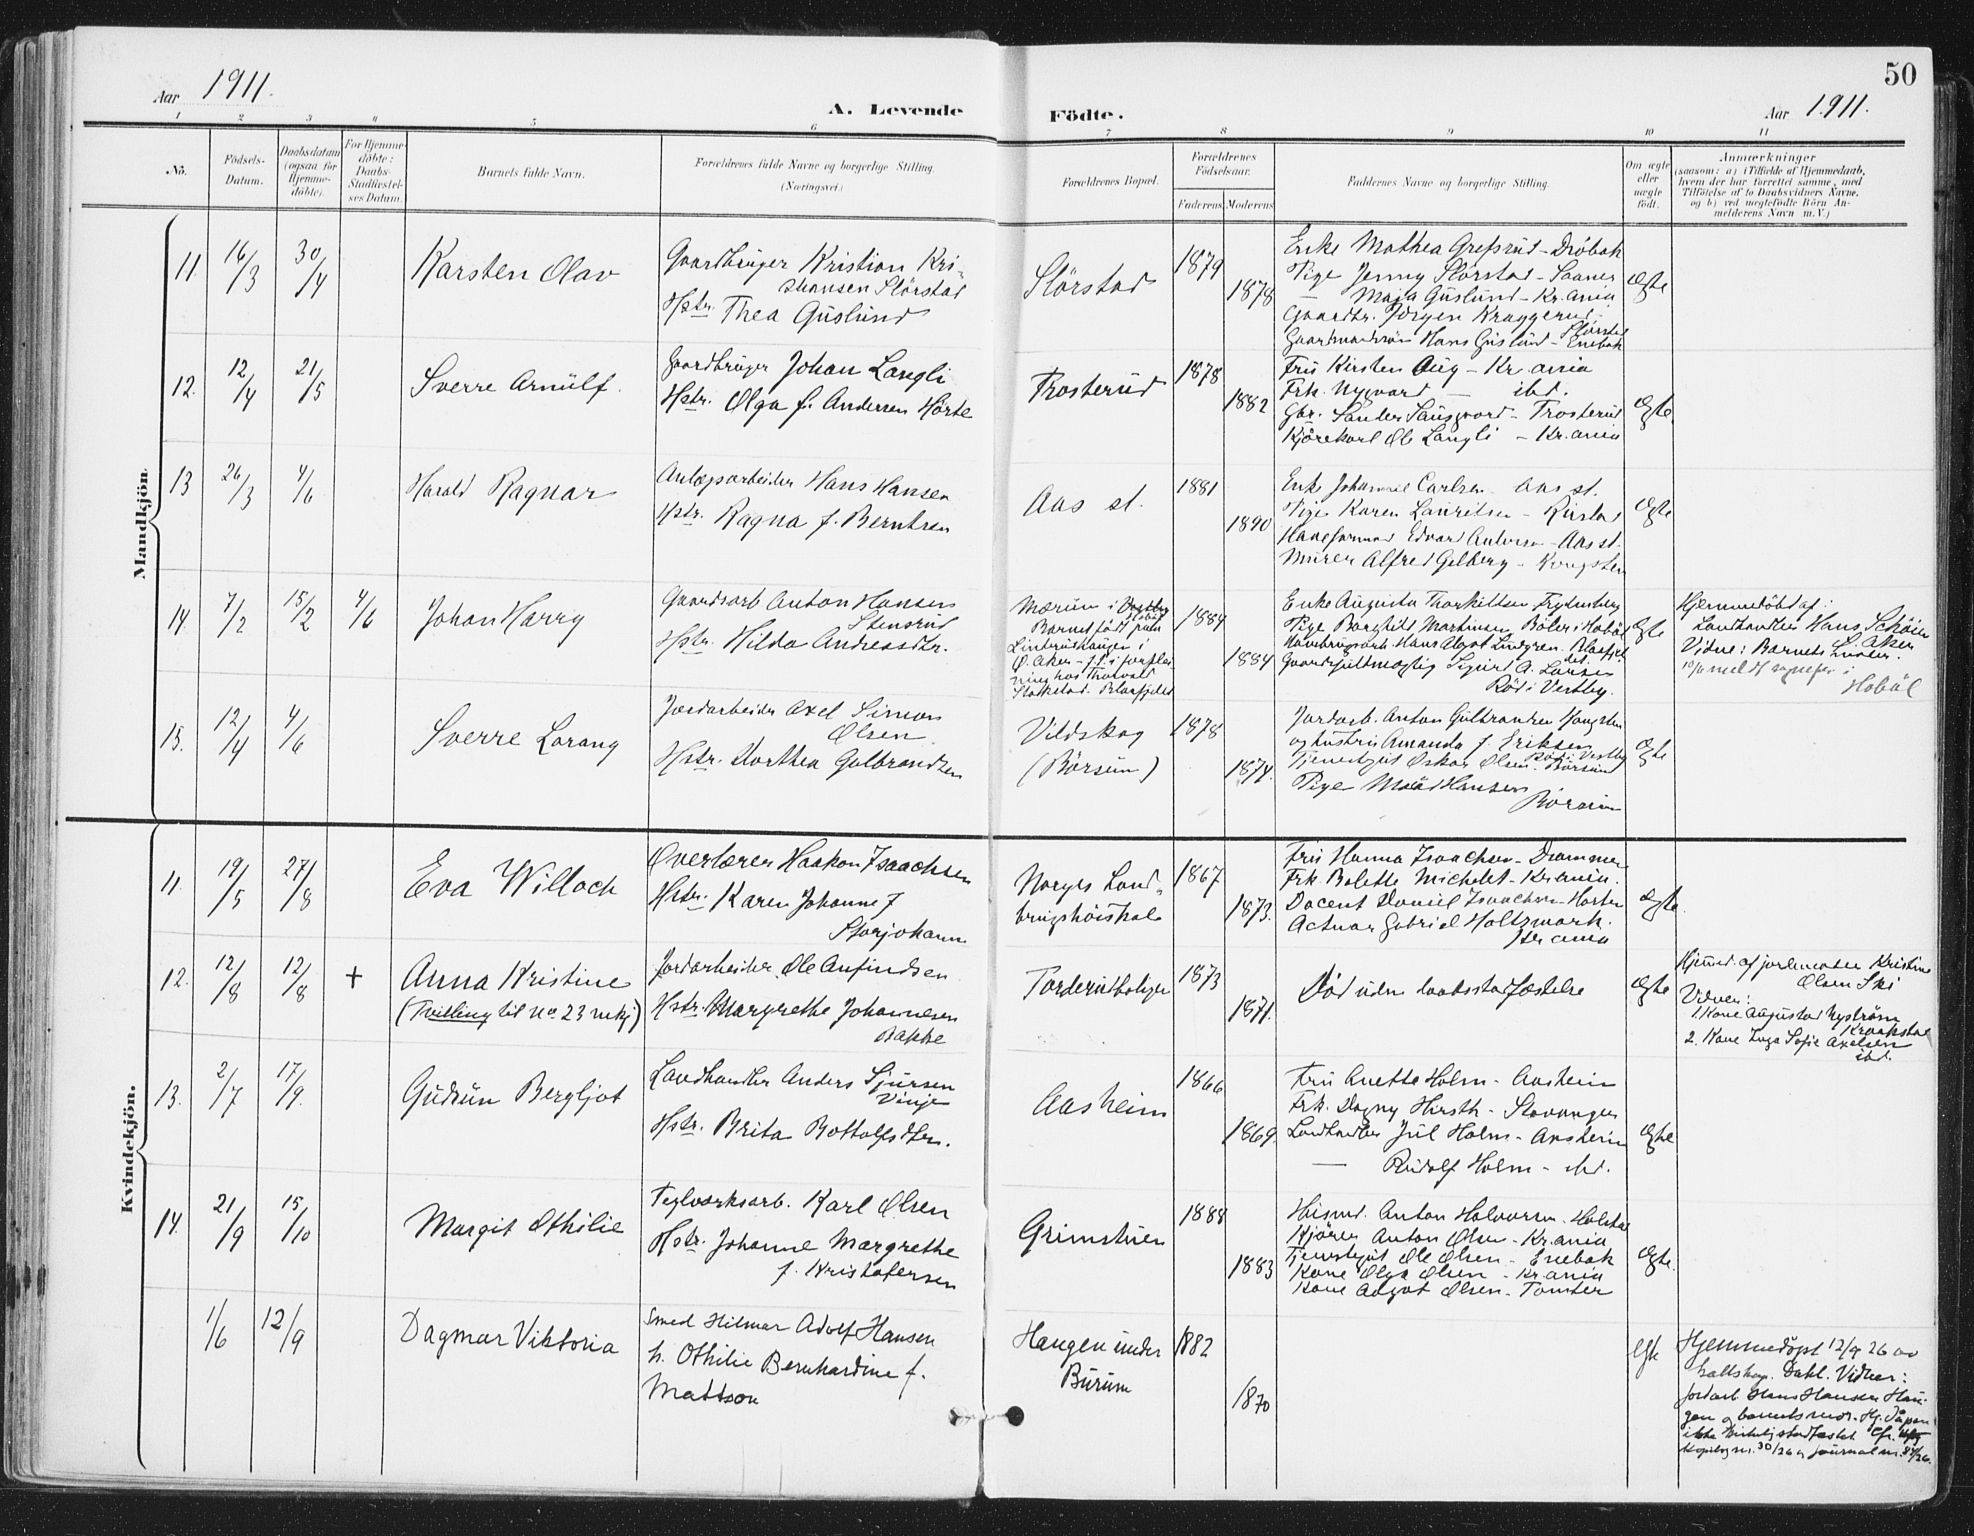 50
Aar 1911.
A. Levende Födte.
Aar 1911.
1 2 3 4 5 6 7 8 9 10 11
No.
Födsels-Datum.
Daabsdatum (ogsaa for Hjemme-döbte).
For Hjemme-döbte: Daabs-Stadfæstel-ses Datum.
Barnets fulde Navn.
Forældrenes fulde Navne og borgerlige Stilling. (Næringsvei.)
Forældrenes Bopæl.
Forældrenes Födselsaar.
Faderens. Moderens.
Faddernes Navne og borgerlige Stilling.
Om ægte eller uægte födt.
Anmærkninger
(saasom: a) i Tilfælde af Hjemmedaab,
hvem der har forrettet samme, med
Tilföielse af to Daabsvidners Navne,
og b) ved uegtefödte Börn An-
melderens Navn m. V.)
Mandkjön.
11. 16/3 30/4 Karsten Olav
Gaardbruger Kristian Kri-
stiansen Slörstad
Hstr. Thea Guslund
Slörstad
1879
1878
Enke Mathea Grefsrud - Dröbak
Pige Jenny Slörstad - Saaner
— Maja Guslund - Kr.ania
Gaardbr. Jörgen Kraggerud
Slörstad
Gaardmandssön Hans Guslund - Enebak
Ægte
12. 12/4 21/5 Sverre Arnülf.
Gaardbruger Johan Langli
Hstr. Olga f. Andersen Hörte
Trosterud
1878
1882
Fru Kirsten Aug - Kr.ania
Frk. Nygaard — ibd.
Gbr. Sander Sausgaard - Trosterud
Kjörekarl Ole Langli - Kr.ania
Ægte.
13 26/3 4/6 Harald Ragnar
Anlægsarbeider Hans Hansen
Hstr. Ragna f. Berntsen
Aas st.
1881
1890
Enke Johanne Carlsen - Aas st.
Pige Karen Lauritsen - Rustad
Edvard Andersen - Aas st.
Murer Alfred Gulberg - Kongsten
Ægte
14. 7/2 15/2 4/6 Johan Harry
Gaardsarb Anton Hansen
Stensrud
Hstr. Hilda Andreasdtr.
Mærum i Vestby
Hobøl
Barnet född paa
Linderudhaugen i
Ö. Aker
hos Thorvald
1884
1884
Enke Augusta Thorkildsen Frydenberg
Pige Borghild Martinsen Böler i Hobøl
Hans August Lindgren
Gaardsfuldmægtig Sigurd A. Larsen
Röd i Vestby.
Ægte
Hjemmedöbt af:
Landhandler Hans Schöien
Ö. Aker
Vidne: Barnets Fader.
Hobøl
15. 12/4 4/6 Sverre Lorang
Jordarbeider Axel Simon
Olsen
Hstr. Dorthea Gulbrandsen
Vildskog
(Börsum)
1878
1874.
Jordarb. Anton Gulbrandsen Kongsten
og hustru Amanda f. Eriksen
Röd i Vestby
Tjenestegut Oskar Olsen - Börsum
Pige Hansen
Börsum
Ægte
Kvindekjön.
11. 19/5 27/8 Eva Willoch
Overlærer Haakon Isaachsen
Hstr. Karen Johanne f
Storjohann
Norges Land-
brugshöiskole
1867
1873.
Fru Hanna Isaachsen - Drammen
Frk. Bolette Michelet - Kr.ania.
Docent Daniel Isaachsen - Horten
Actuar Gabriel Holtsmark.
Kr.ania
Ægte.
12. 12/8 12/8 + Anna Kristine
(Tvilling til No 23 mkj)
Jordarbeider Ole Anfindsen
Hstr. Margrethe Johannesen
Bakke
Torderudboliger
1873
1871.
Död uden daabsstadfæstelse
Ægte
Hjemd. af jordemoder Kristine
Olsen Ski
Vidner:
1. Kone Augusta Nyström
Kraakstad
2. Kone Inga Sofie Axelsen
ibd.
13. 2/7 17/9. Gudrün Bergljot
Landhandler Anders Sjursen
Vinje
Hstr. Brita Bottolfsdtr.
Aasheim
1866
1869.
Fru Anette Holm - Aasheim
Frk. Dagny Hirsth - Stavanger
Landhandler Jul Holm - Aasheim
— Rudolf Holm - ibd.
Ægte
14. 21/9 15/10 Margit Othilie
Teglværksarb. Karl Olsen
Hstr. Johanne Margrethe
f. Kristofersen
Grimstuen
1888
1883
Husmd. Anton Halvorsen - Holstad
Kjörer Anton Olsen - Kr.ania
Tjenestegut Ole Olsen - Enebak
Kone Olga Olsen - Kr.ania
Kone August Olsen - Tomter
Ægte.
1/6 12/9 Dagmar Viktoria
Smed Hilmar Adolf Hansen
h. Othilie Bernhardine f.
Mattson
Haugen under
Burum
1882
1870
egte
Hjemmedöpt 12/9 26 av
Dahl. Vidner:
Jordarb. Hans Hansen Hau-
gen og barnets mor. Hj. dåpen
ikke kirkelig stadfæstet. Cfr.
Kopibog nr. 30/26 og journal nr. 84/26.